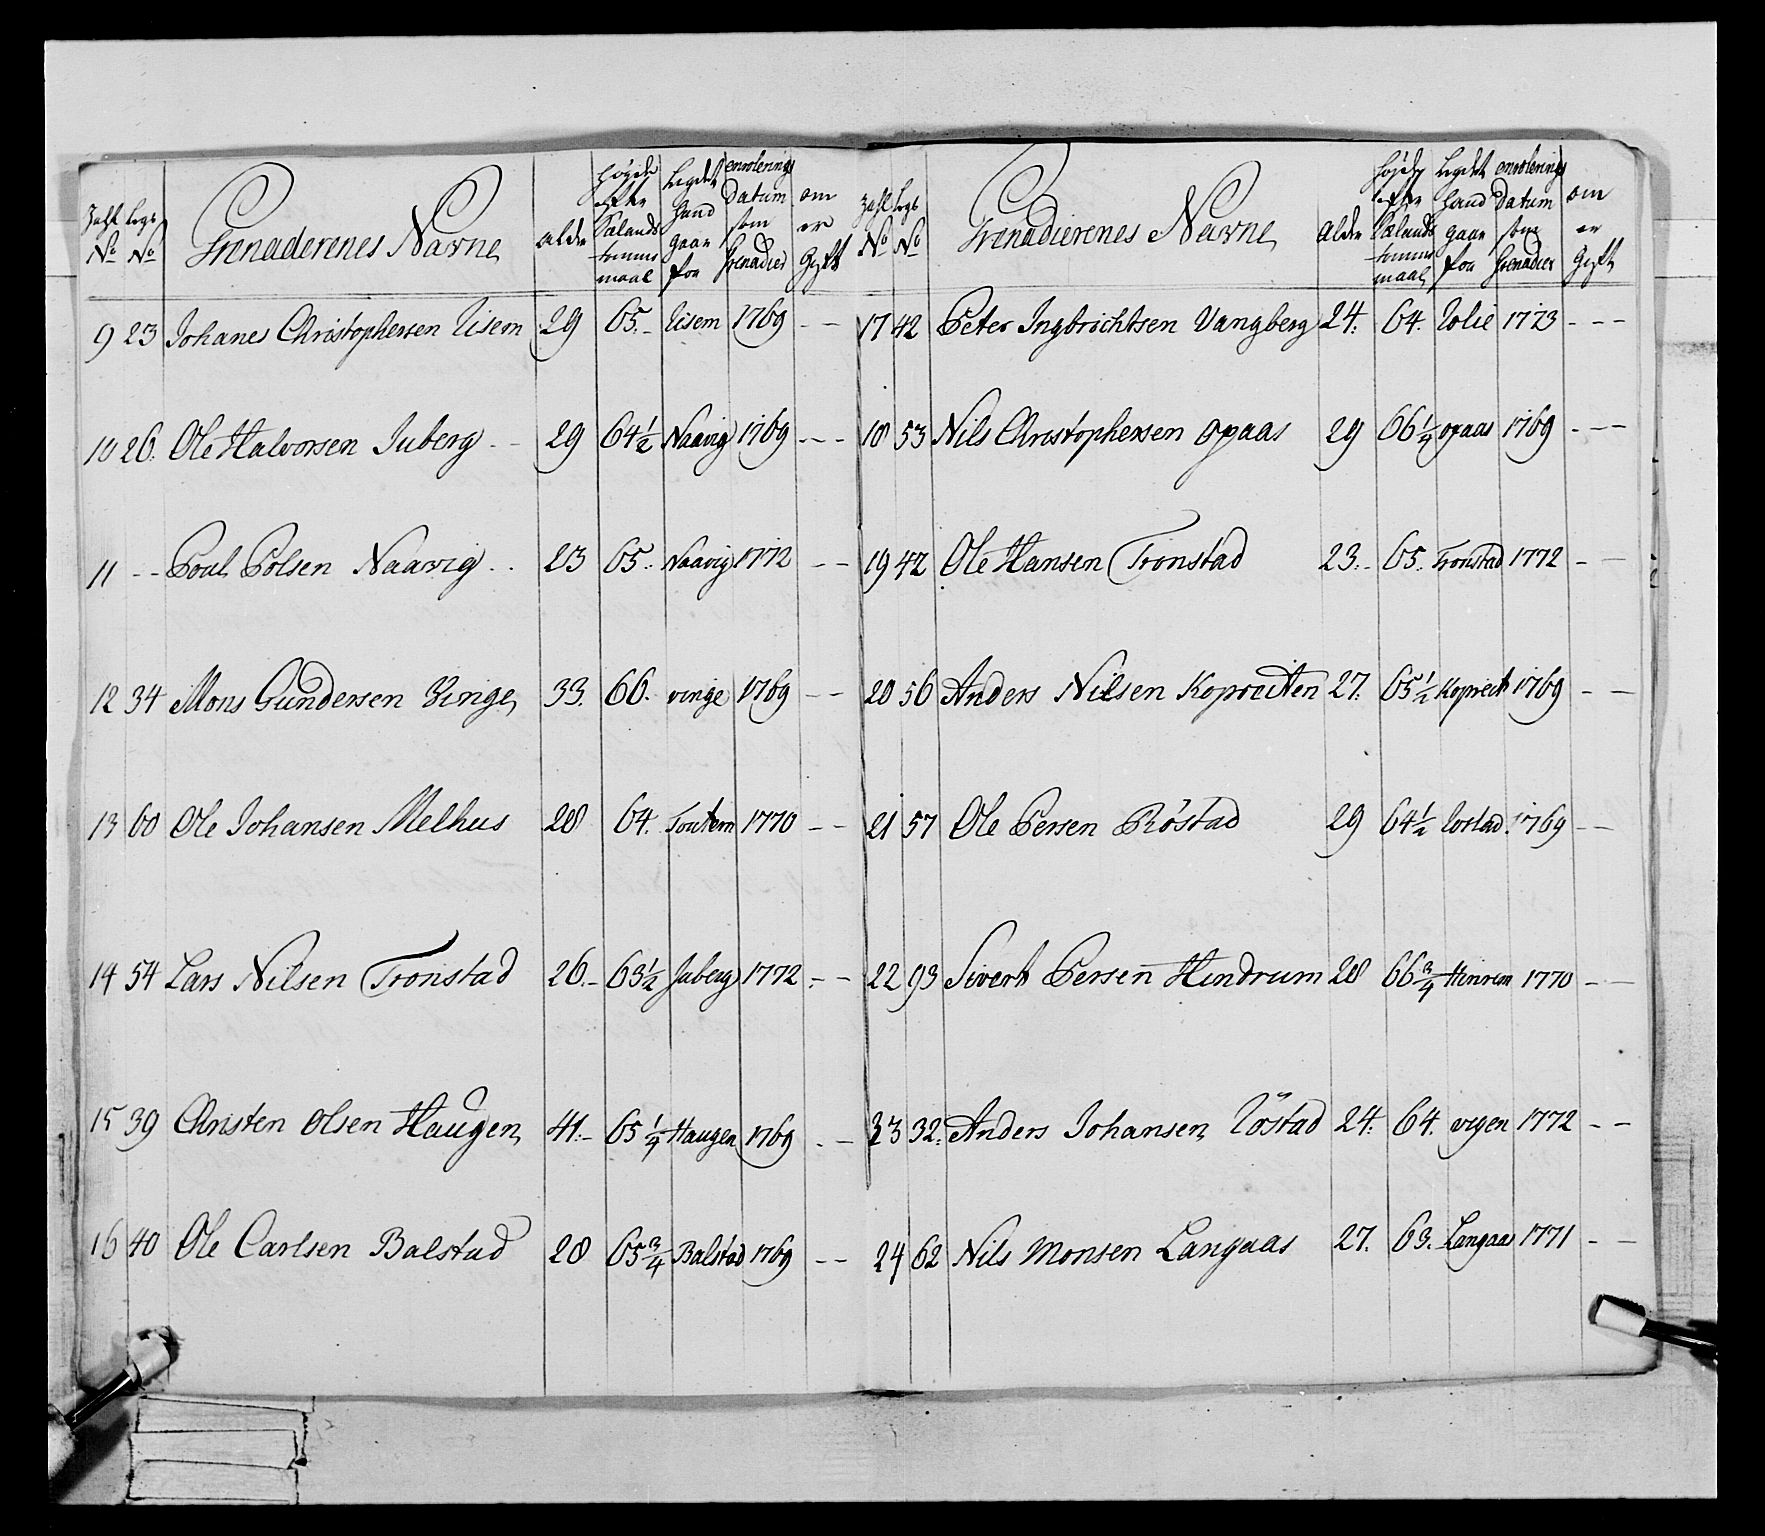 Zahl No legs No Grenaderenes Navne alder Høyde efter Sælands tomme maal Legdet hand gaar foor enrolerings Datum som Grenadier om er Gift
9 23 Johanes Christophersen Risem 29 65.- Risem 1769 - -
10 26. Ole Halvorsen Juberg - - 29 64 1/2 Naavig 1769 - - -
11 - - Poul Polsen Naavig . . 23 65.. Naavig 1772 - -
12 34 Mons Gundersen Vinge 33. 66. vinge 1769 - -
13 60 Ole Johansen Melhus 28 64. 1770 - -
14 54 Lars Nilsen Tronstad 26.- 63 1/2 Juberg 1772 - -
15 39 Christen Olsen Haugen 41.- 65 1/4 Haugen 1769 - -
16 40 Ole Carlsen Balstad 28 65 3/4 Balstad 1769 - -
Zahl No legs No Grenadierenes Navne Alder Høyde efter Sælands tomme maal Legdet hand gaar foor enrolerings Datum som Grenadier om er Gift
17 42 Peter Ingbrichtsen Vangberg 24. 64. Rolie 1773 - - -
18 53 Nils Christophersen opaas 29 66 1/4 opaas 1769 - - -
19 42 Ole Hansen Tronstad 23.- 65.. Tronstad 1772 - -
20 56 Anders Nilsen Kopreiten 27. 65 1/2 Kopreit 1769 - -
21 57 Ole Persen Röstad 29 64 1/2 Rostad 1769 - -
22 93 Sivert Persen Hindrum 28 66 3/4 Hinrem 1770 - -
23 32. Anders Johansen Röstad 24. 64. vigen 1772 - -
24 62 Nils Monsen Langaas 27. 63. Langaas 1771 - -